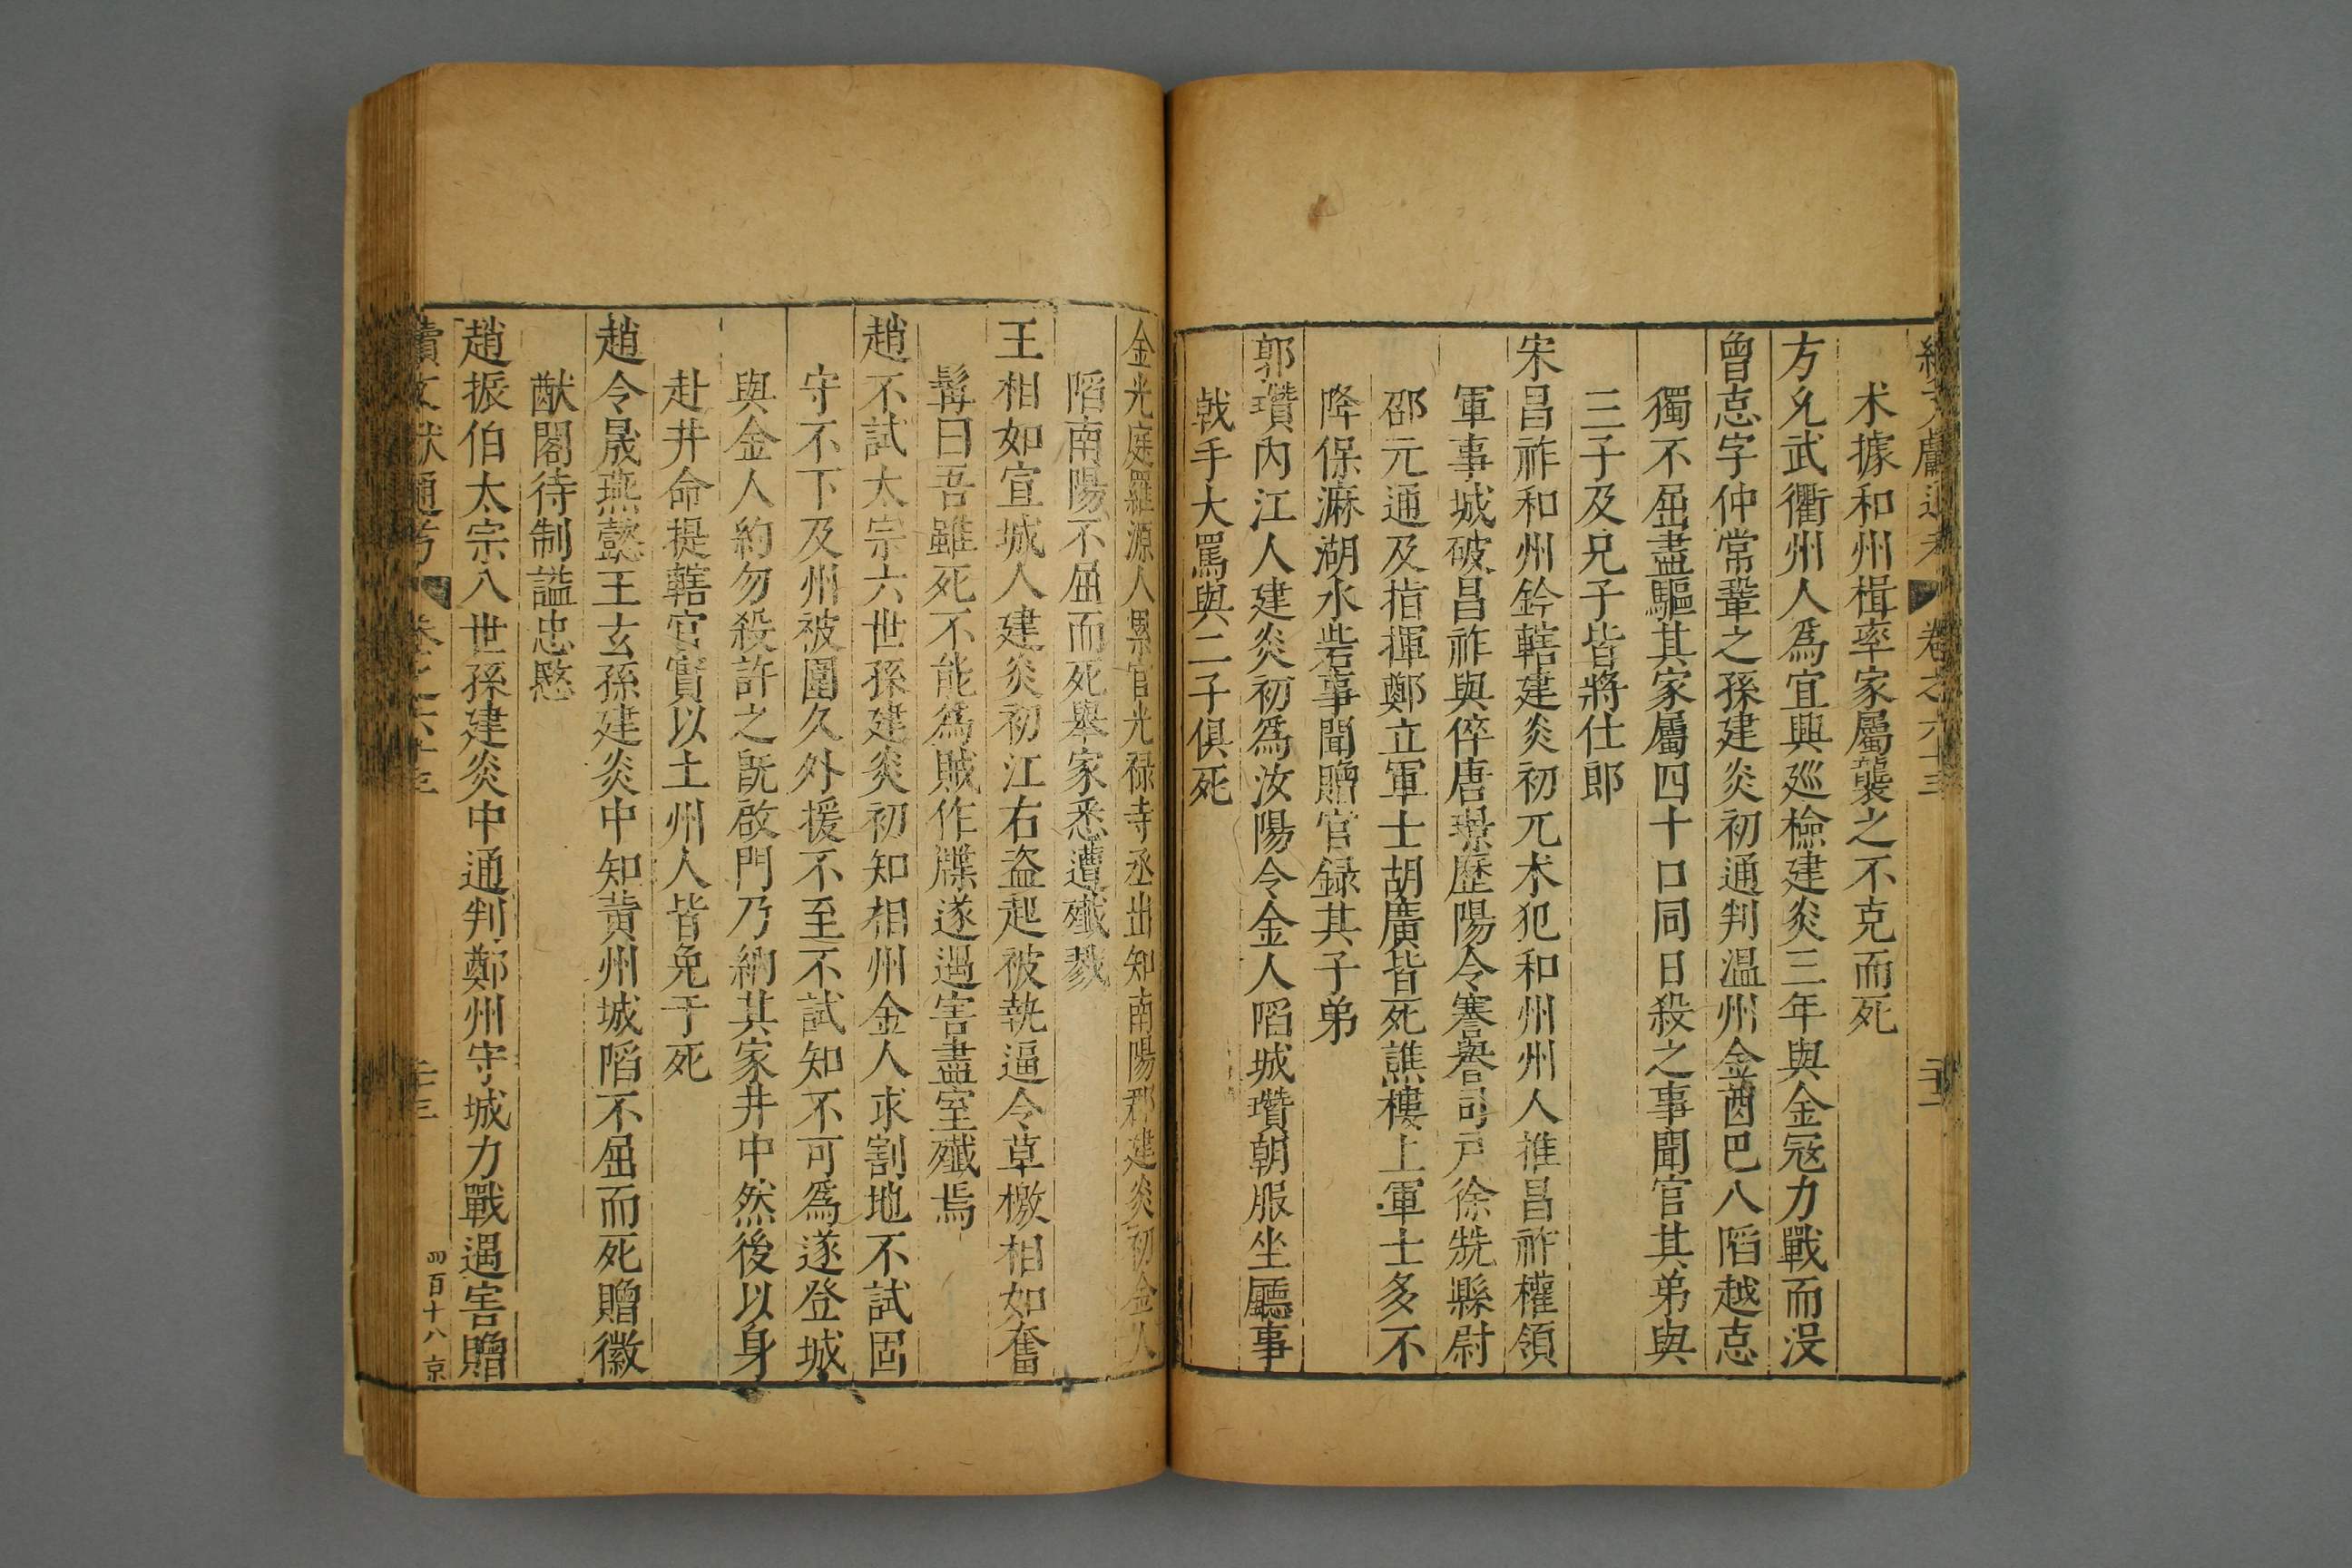 續文獻通考 卷之六十三 二十二
术據和州楫率家屬襲之不克而死
方允武衢州人爲宜興廵檢建炎三年與金冦力戰而没
曾忎字仲常鞏之孫建炎初通判温州金酋巴八陷越忎
獨不屈盡驅其家屬四十口同日殺之事聞官其弟與
三子及兄子皆將仕郎
宋昌祚和州鈐轄建炎初兀术犯和州州人推昌祚權領
軍事城破昌祚與倅唐璟歴陽令蹇譽司户徐兟縣尉
邵元通及指揮鄭立軍士胡廣皆死譙樓上軍士多不
降保麻湖水砦事聞贈官録其子弟
郭瓚内江人建炎初爲汝陽令金人陷城瓚朝服坐廳事
戟手大罵與二子俱死
金光庭羅源人累官光禄寺丞出知南陽郡建炎初金人
陷南陽不屈而死舉家悉遭殲戮
王相如宣城人建炎初江右盗起被執逼令草檄相如奮
髯曰吾雖死不能爲賊作牒遂遇害盡室殲焉
趙不試太宗六世孫建炎初知相州金人求割地不試固
守不下及州被圍久外援不至不試知不可爲遂登城
與金人約勿殺許之既啟門乃納其家井中然後以身
赴井命提轄官實以土州人皆免于死
趙令晟燕懿王玄孫建炎中知黄州城陷不屈而死贈徽
猷閣待制謚忠愍
趙振伯太宗八世孫建炎中通判鄭州守城力戰遇害贈
續文獻通考 卷之六十三 二十三 四百十八 京